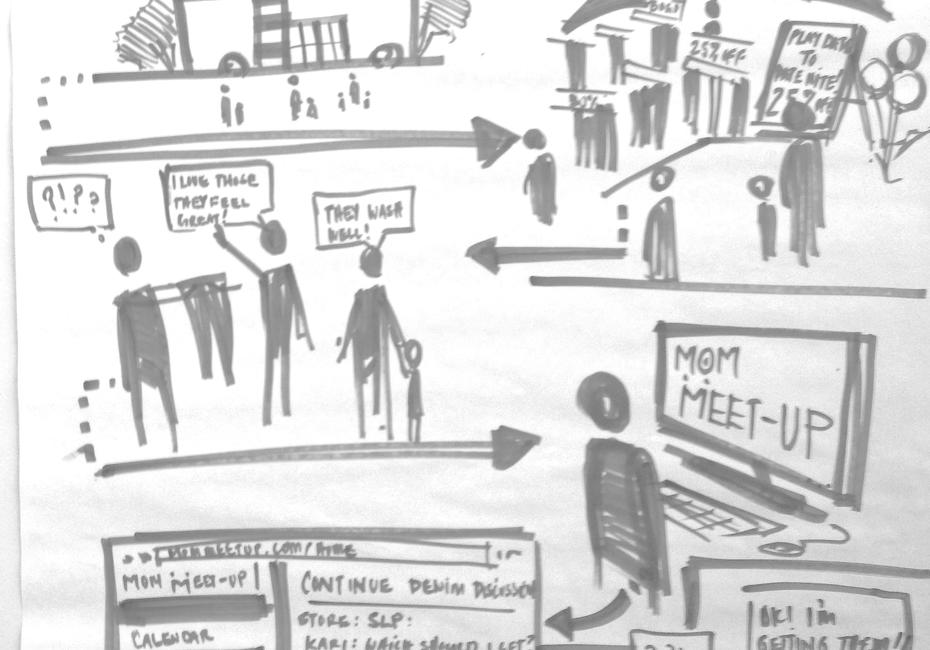 25% OFF
PLAY DATE
TO
DATE NITE!
25% OFF
?!??
I LOVE THOSE
THEY FEEL
GREAT!
THEY WASH
WELL!
MOM
MEET-UP
MOMMEETUP.COM/HOME
MOM MEET-UP
CONTINUE DENIM DISCUSSION
STORE: SLP:
CALENDAR
KARI: WHICH SHOULD I GET?
OK! I'm
GETTING THEM!!